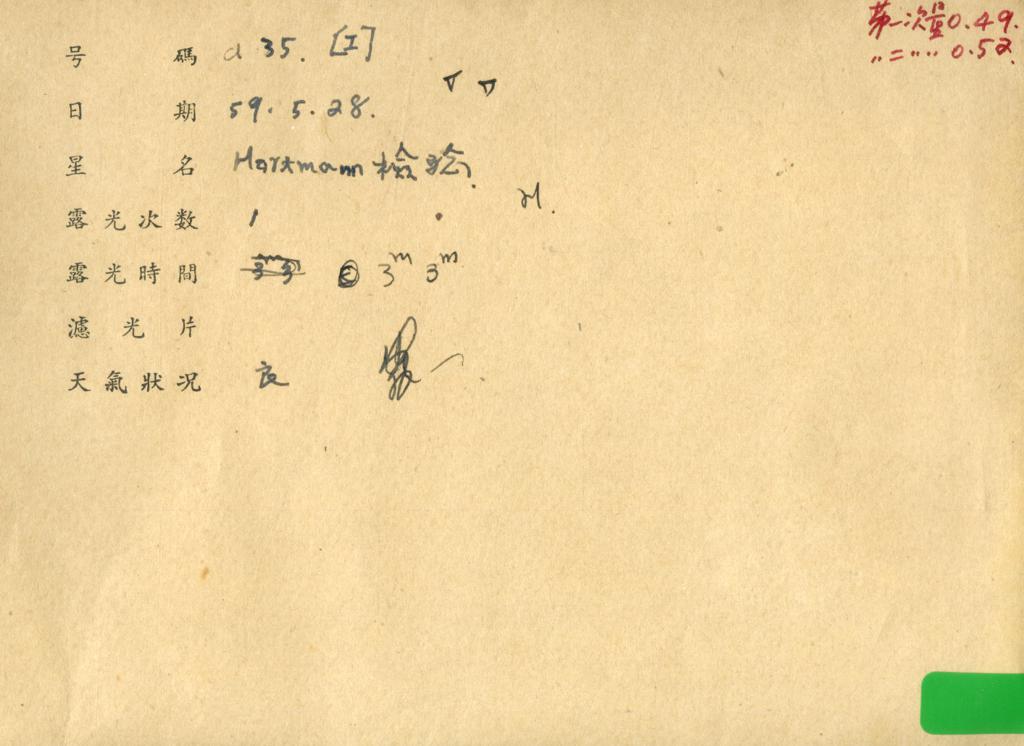 第一次量0.49.
〃二〃〃 0.52.
号碼 d 35. [I]
日期 59.5.28.
星名 Hartmann 檢驗
露光次数 1
露光時間 3m 3m
濾光片
天氣狀況 良